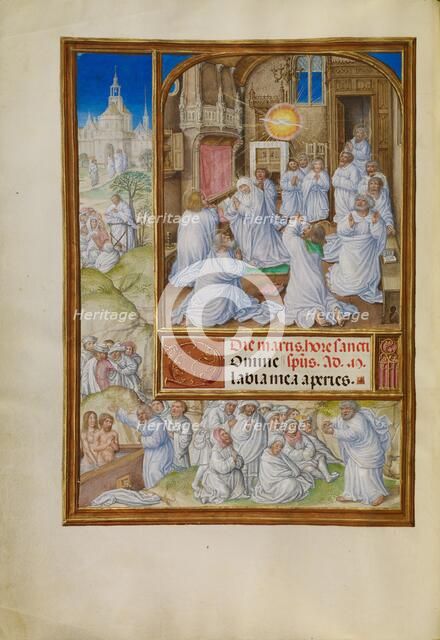 Die martis, hore sancti
Domine sp̃us. Ad. m̃.
labia mea aperies.
Heritage Heritage
Heritage Heritage
Heritage Heritage
Heritage Heritage